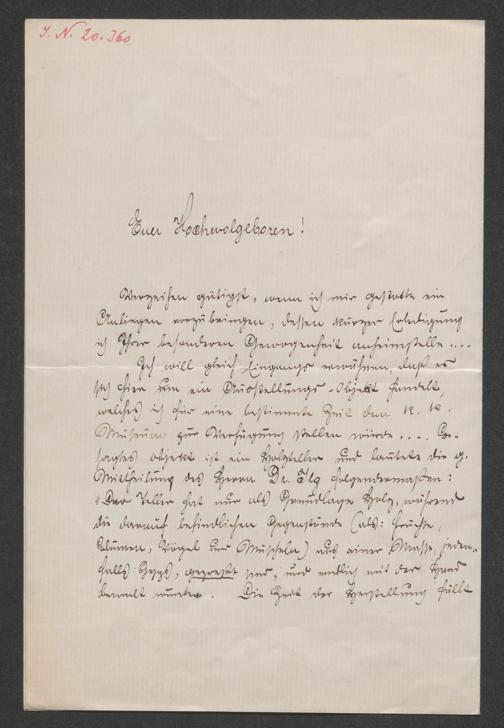 I. N. 20.360
Euer Hochwolgeboren!
Verzeihen gütigst, wenn ich mir gestatte ein
Anliegen vorzubringen, dessen kurzer Erledigung
ich Ihrer besonderen Gewogenheit anheimstelle....
Ich will gleich Eingangs erwähnen, daß es
sich hier um ein Ausstellungs-Objekt handelt,
welches ich für eine bestimmte Zeit dem k. k.
Museum zur Verfügung stellen würde.... Be-
sagtes Objekt ist ein Holzteller und lautete die g.
Mittheilung des Herrn Dr. Ilg folgendermaßen:
"Der Teller hat nur als Grundlage Holz, während
die darauf befindlichen Gegenstände (als: Früchte,
Blumen, Vögel und Muscheln) aus einer Masse, jeden-
falls Gyps, gepreßt sind, und endlich mit der Hand
bemalt wurden. Die Zeit der Herstellung fällt